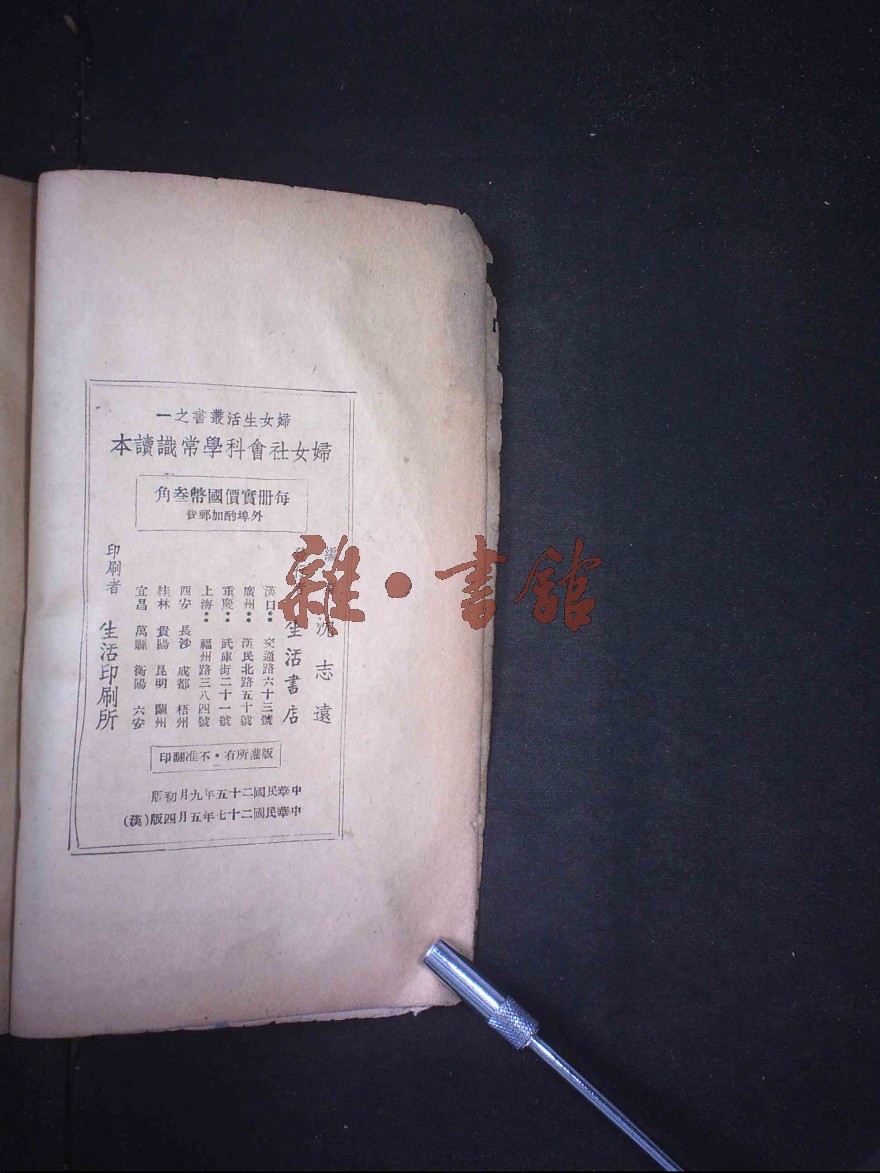 婦女生活叢書之一
婦女社會科學常識讀本
每冊實價國幣叁角
外埠酌加郵費
編
沈志遠
生活書店
漢口：交通路六十三號
廣州：漢民北路五十號
重慶：武庫街二十一號
上海：福州路三八四號
西安 長沙 成都 梧州
桂林 貴陽 昆明 蘭州
宜昌 萬縣 衡陽 六安
印刷者 生活印刷所
版權所有·不准翻印
中華民國二十五年九月初版
中華民國二十七年五月四版(漢)
雜·書館